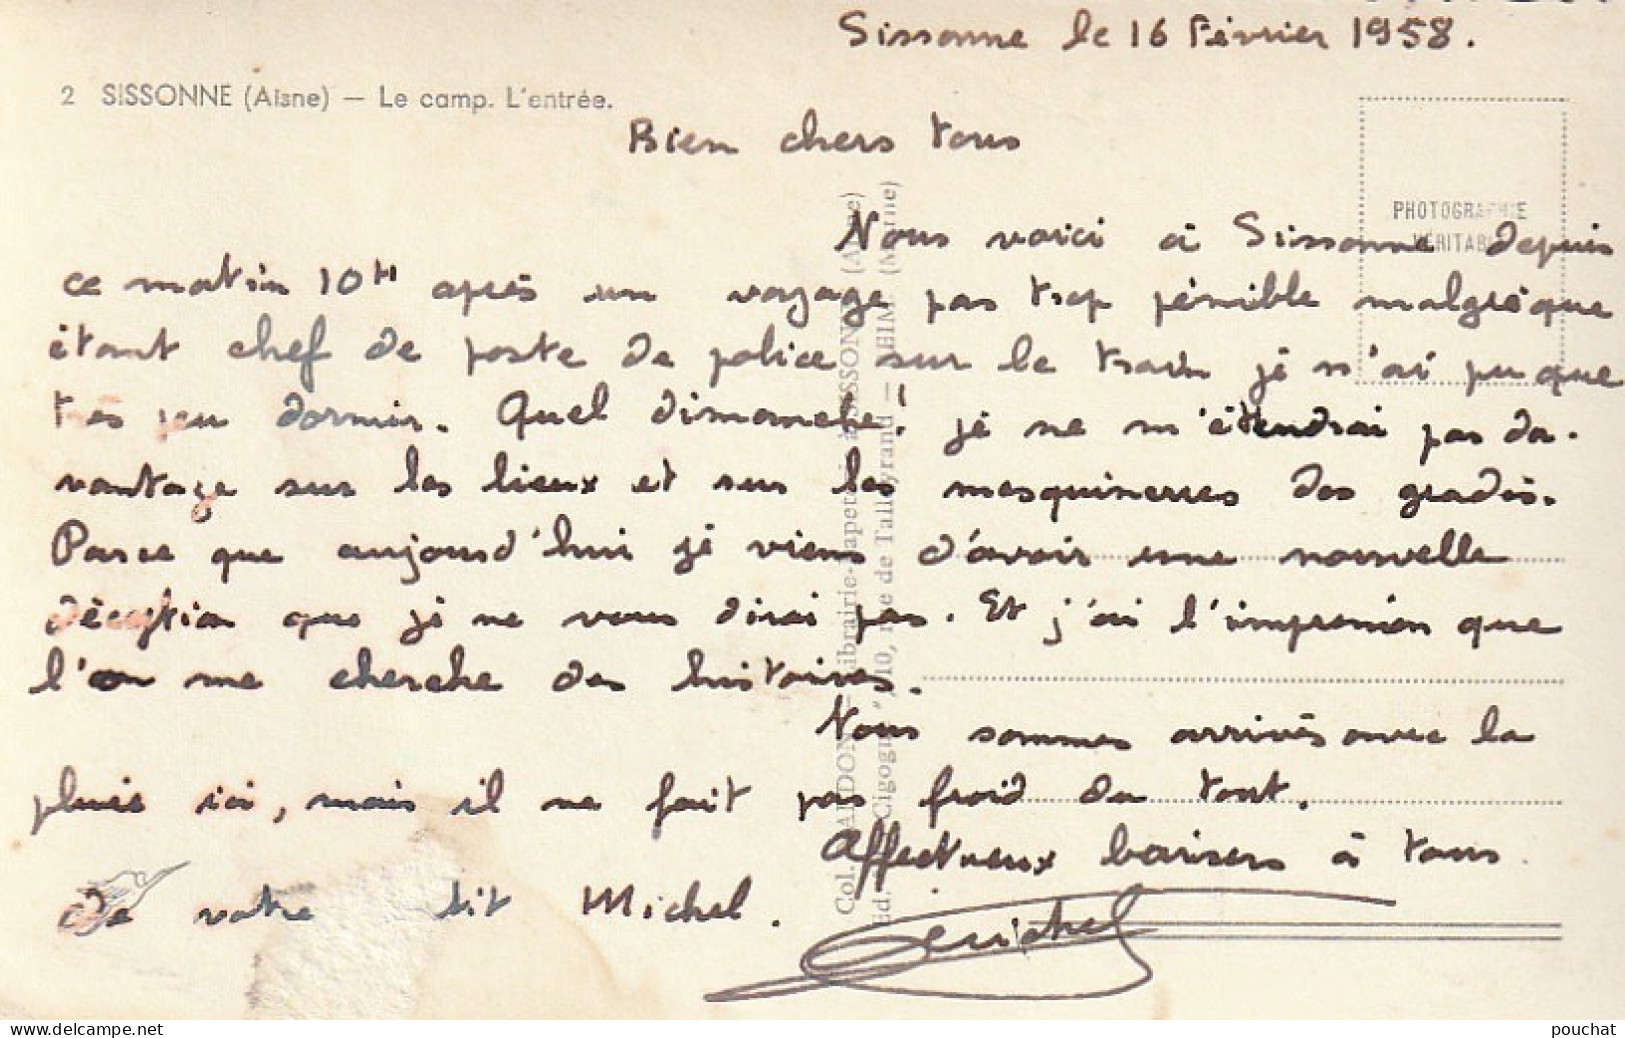 Sissonne le 16 Février 1958.
2 SISSONNE (Aisne) — Le camp. L'entrée.
Bien chers tous
PHOTOGRAPHIE
VÉRITABLE
Nous voici à Sissonne depuis
ce matin 10H après un voyage pas trop pénible malgré que
étant chef de poste de police sur le train je n'ai pu que
très peu dormir. Quel dimanche! je ne m'étendrai pas da-
vantage sur les lieux et sur les mesquineries des gradés.
Parce que aujourd'hui je viens d'avoir une nouvelle
déception que je ne vous dirai pas. Et j'ai l'impression que
l'on me cherche des histoires.
Nous sommes arrivés avec la
pluie ici, mais il ne fait pas froid du tout.
Affectueux baisers à tous.
de votre tit Michel.
Michel
Librairie-Papeterie à SISSONNE (Aisne)
Ed. "Cigogne", 10, rue de Talleyrand — REIMS (Marne)
www.delcampe.net
pouchat